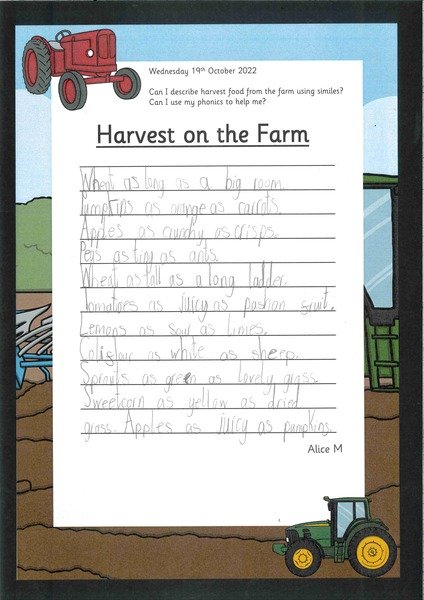 Wednesday 19th October 2022
Can I describe harvest food from the farm using similes?
Can I use my phonics to help me?
Harvest on the Farm
Wheat as long as a big room.
Pumpkins as orange as carrots.
Apples as crunchy as crisps.
Peas as tiny as ants.
Wheat as tall as a long ladder.
Tomatoes as juicy as pashan fruit.
Lemons as sour as limes.
as white as sheep.
Sprouts as green as lovely grass.
Sweetcorn as yellow as dried
grass. Apples as juicy as pumpkins.
Alice M